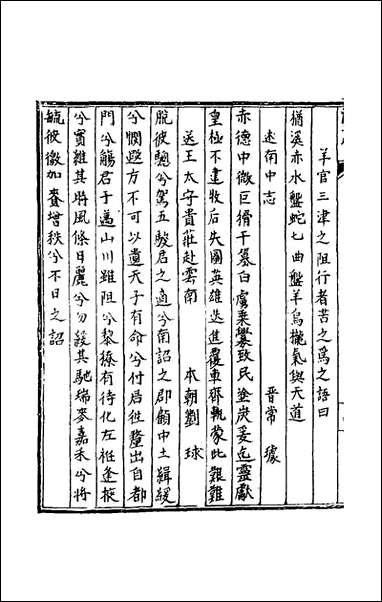 羊官三津之阻行者苦之為之語曰
楢溪赤水盤蛇七曲盤羊烏攏氣與天通
述南中志　晉常璩
赤德中微巨猾干纂白虜乘釁致民塗炭爰迄靈獻
皇極不建牧后失圖英雄迭進覆車齊軌蒙此艱難
送王太守貴莊赴雲南　本朝劉球
脫彼驄兮駕五駿君之適兮南詔之郡顧中土輯緩
兮憫遐方不可以遺天子有命兮付启徃釐出自都
門兮觴君于邁山川雖阻兮黎獠有待化左袵逢掖
兮賓雖其將風條日麗兮勿緩其馳瑞麥嘉禾兮將
毓彼徼加賚增秩兮不日之詔